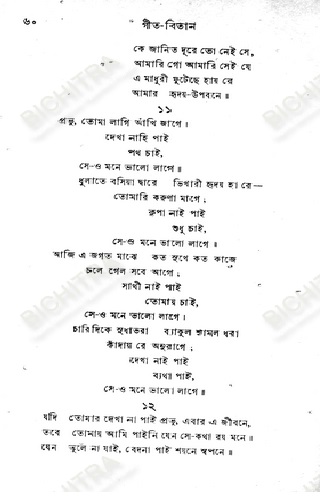 ৬০ গীত-বিতান
কে জানিত দূরে তো নেই সে,
আমারি গো আমারি সেই যে
এ মাধুরী ফুটেছে হায় রে
আমার হৃদয়-উপবনে॥
১১
প্রভু, তোমা লাগি আঁখি জাগে।
দেখা নাহি পাই
পথ চাই,
সে-ও মনে ভালো লাগে॥
ধুলাতে বসিয়া দ্বারে ভিখারী হৃদয় হা রে—
তোমারি করুণা মাগে;
কৃপা নাই পাই
শুধু চাই,
সে-ও মনে ভালো লাগে॥
আজি এ জগত মাঝে কত সুখে কত কাজে
চলে গেল সবে আগে;
সাথী নাই পাই
তোমায় চাই,
সে-ও মনে ভালো লাগে।
চারিদিকে সুধাভরা ব্যাকুল শ্যামল ধরা
কাঁদায় রে অনুরাগে;
দেখা নাই পাই
ব্যথা পাই,
সে-ও মনে ভালো লাগে॥
১২
যদি তোমার দেখা না পাই প্রভু, এবার এ জীবনে,
তবে তোমায় আমি পাইনি যেন সে-কথা রয় মনে॥
যেন ভুলে না যাই, বেদনা পাই শয়নে স্বপনে॥
BICHITRA